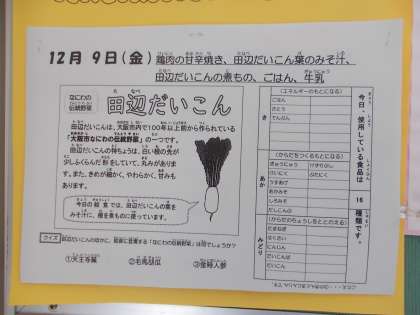 12月 9日(金) 鶏肉の甘辛焼き、田辺だいこん葉のみそ汁、
田辺だいこんの煮もの、ごはん、牛乳
なにわの
伝統野菜
田辺だいこん
田辺だいこんは、大阪市内で100年以上前から作られている
「大阪市なにわの伝統野菜」の一つです。
田辺だいこんの特ちょうは、白い根の先が
少しふくらんだ形をしていて、丸みがありま
す。また、きめが細かく、やわらかく、甘みも
あります。
今日の給食では、田辺だいこんの葉を
みそ汁に、根を煮ものに使っています。
クイズ
①天王寺蕪 ②毛馬胡瓜 ③金時人参
今日、使用している食品は
16
種類です。
(エネルギーのもとになる)
き
ごはん
さとう
でんぷん
(からだをつくるもとになる)
あか
ぎゅうにゅう
けずりぶし
とりにく
だしこんぶ
(からだのちょうしをととのえる)
みどり
たまねぎ
はくさい
にんじん
だいこんば
だいこん